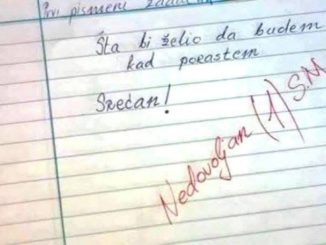 Prvi pismeni zadatak
Šta bi želio da budem
kad porastem
Srećan!
Nedovoljan (1) S.M